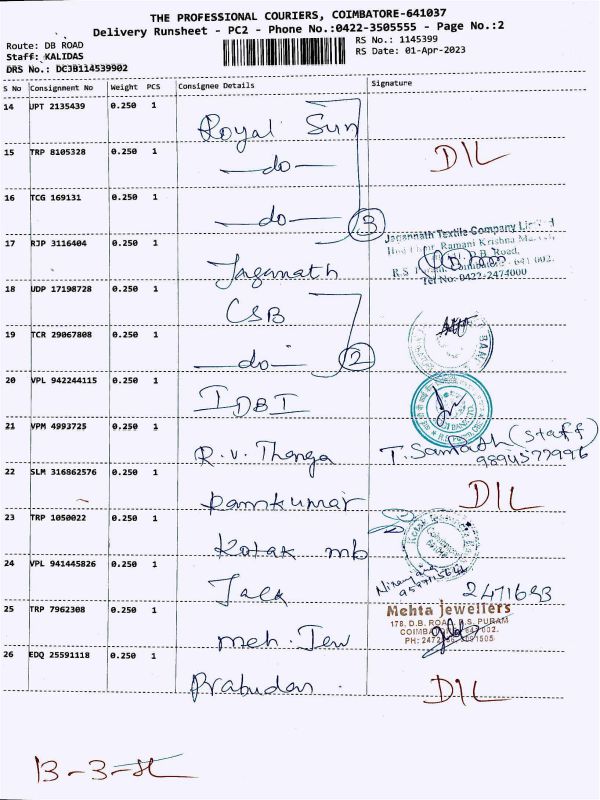 THE PROFESSIONAL COURIERS, COIMBATORE-641037
Delivery Runsheet - PC2 - Phone No.:0422-3505555 - Page No.:2
Route: DB ROAD
RS No.: 1145399
Staff: KALIDAS
RS Date: 01-Apr-2023
DRS No.: DCJB114539902
S No Consignment No Weight PCS Consignee Details Signature
14 JPT 2135439 0.250 1 Royal Sun
15 TRP 8105328 0.250 1 —do— DIL
16 TCG 169131 0.250 1 —do— 3
17 RJP 3116404 0.250 1 Jaganath
Jagannath Textile Company Limited
Ramani Krishna
D.B. Road,
R.S. Puram, Coimbatore - 641 002.
Tel No: 0422-2474000
18 UDP 17198728 0.250 1 CSB
19 TCR 29067808 0.250 1 —do— 2
20 VPL 942244115 0.250 1 IDBI
21 VPM 4993725 0.250 1 R.V. Thanga T. Sampath (Staff)
9894577996
22 SLM 316862576 0.250 1 Ramkumar DIL
23 TRP 1050022 0.250 1 Kotak mb
Niranjana
24 VPL 941445826 0.250 1 2471683
25 TRP 7962308 0.250 1 meh. Jew
Mehta Jewellers
178, D.B. ROAD, R.S. PURAM
COIMBATORE 641 002.
26 EDQ 25591118 0.250 1 Prabudan DIL
13-3-